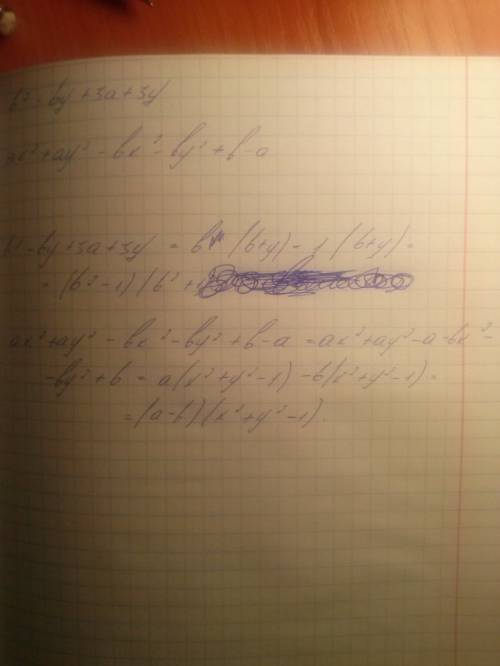 b² - by + 3a + 3y
ax² + ay² - bx² - by² + b - a
b² - by + 3a + 3y = b (b+y) - 1 (b+y) =
= (b² - 1) (b² +
ax² + ay² - bx² - by² + b - a = ax² + ay² - a - bx² -
- by² + b = a(x² + y² - 1) - b(x² + y² - 1) =
= (a - b) (x² + y² - 1).